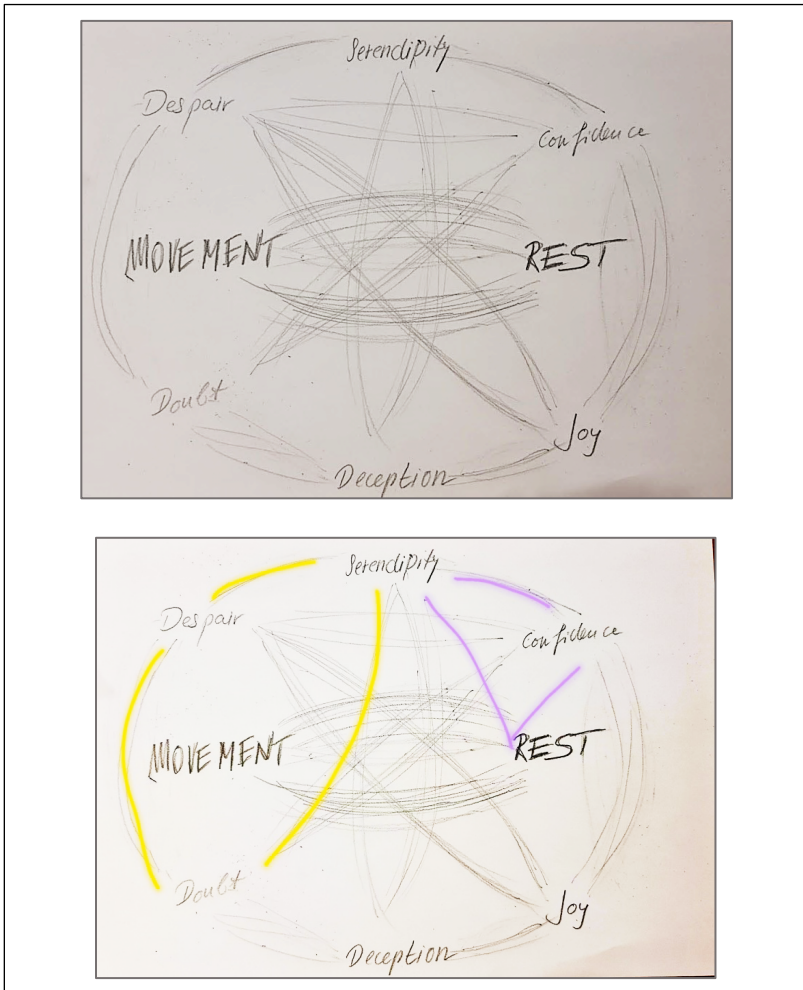 Serendipity
Despair
Confidence
MOVEMENT
REST
Doubt
Joy
Deception
Serendipity
Despair
Confidence
MOVEMENT
REST
Doubt
Joy
Deception